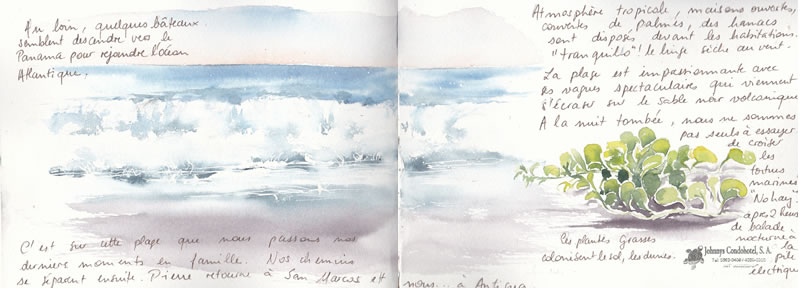 Au loin, quelques bâteaux
semblent descendre vers le
Panama pour rejoindre l'océan
Atlantique.
Atmosphère tropicale, maisons ouvertes,
couvertes de palmes, des hamacs
sont disposés devant les habitations.
"tranquillo"! le linge sèche au vent.
La plage est impressionnante avec
ses vagues spectaculaires qui viennent
s'écraser sur le sable noir volcanique
A la nuit tombée, nous ne sommes
pas seuls à essayer
de croiser
les
tortues
marines
"No hay"
après 2 heures
de balade
nocturne à
la
pile
électrique
Ces plantes grasses
colonisent le sol, les dunes.
Johnnys Condohotel, S. A.
C'est sur cette plage que nous passons nos
derniers moments en famille. Nos chemins
se séparent ensuite. Pierre retourne à San Marcos et
nous... à Antigua